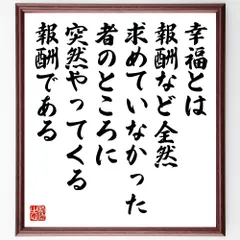 幸福とは
報酬など全然
求めていなかった
者のところに
突然やってくる
報酬である